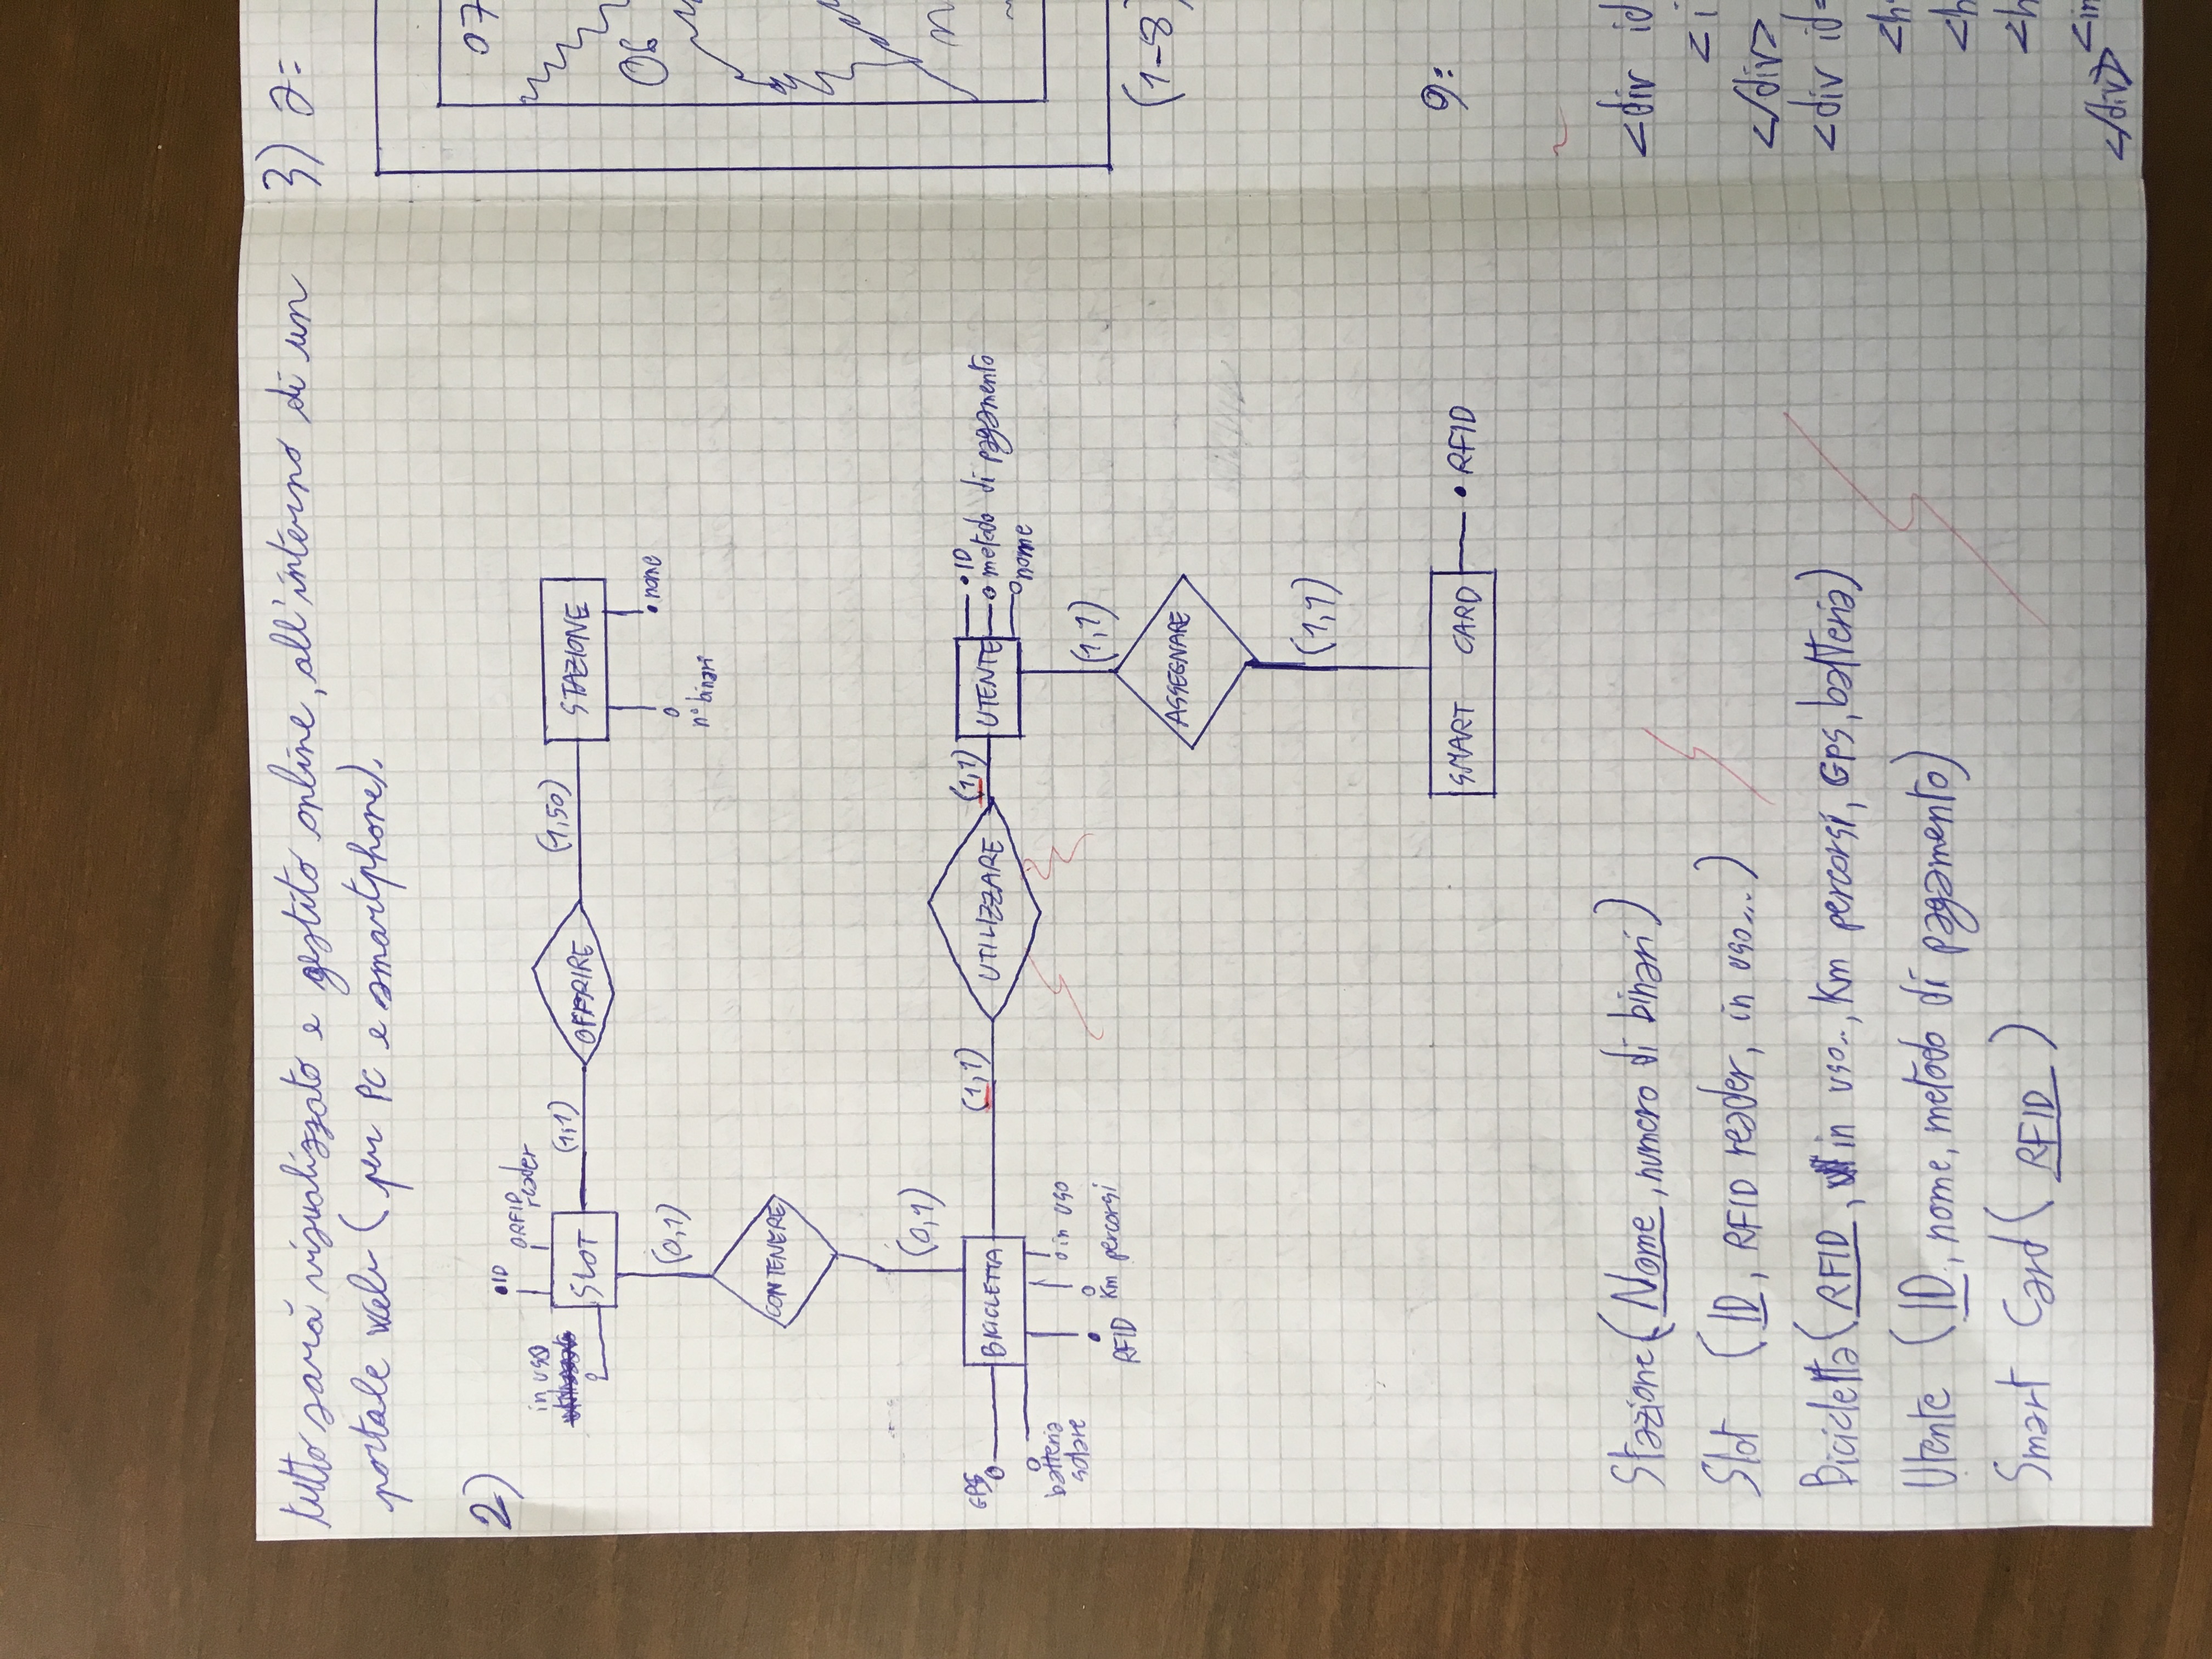 tutto sarà visualizzato e gestito online, all'interno di un
portale web (per PC e smartphone).
2)
ID
RFID
reader
in uso
SLOT
(1,1)
OFFRIRE
(1,50)
STAZIONE
nome
n° binari
(0,1)
CONTENERE
(0,1)
GPS
BICICLETTA
(1,1)
UTILIZZARE
(1,1)
UTENTE
ID
metodo di pagamento
nome
batteria
solare
RFID
Km percorsi
in uso
(1,1)
ASSEGNARE
(1,1)
SMART CARD
RFID
Stazione (Nome, numero di binari)
Slot (ID, RFID reader, in uso...)
Bicicletta (RFID, in uso.., Km percorsi, GPS, batteria)
Utente (ID, nome, metodo di pagamento)
Smart Card (RFID)
3) a:
07
06
(1-8)
9:
<div id
<i
</div>
<div id=
<h
<h
<h
<in
</div>